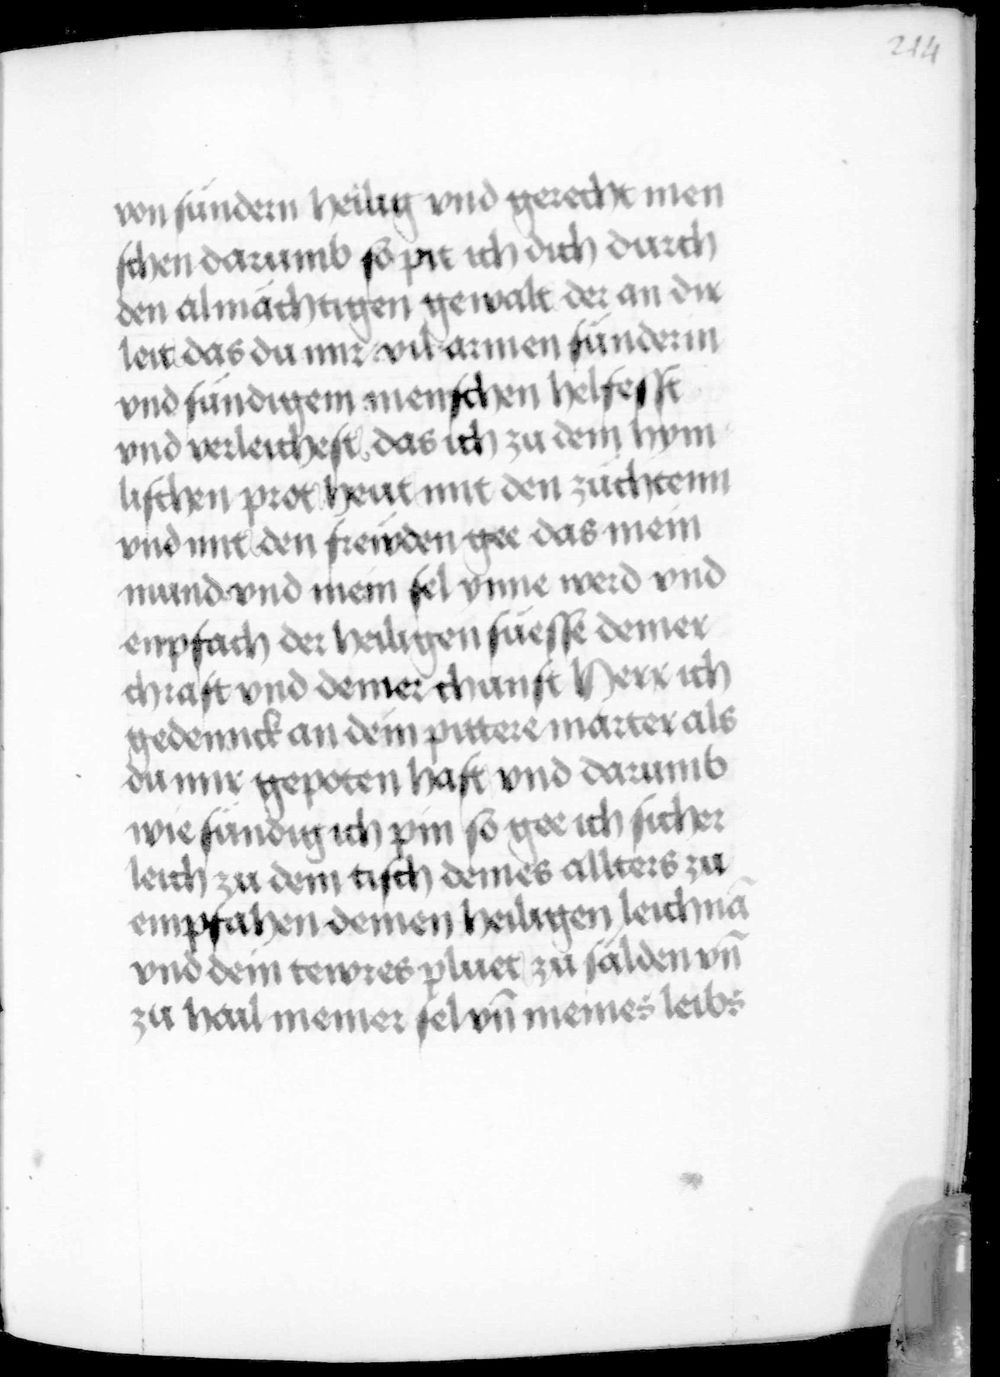 214
von sündern heilig vnd gerecht men
schen darumb so pit ich dich durch
den almächtigen gewalt der an dir
leit das du mir vil armen sünderin
vnd sündigem menschen helfesst
vnd verleichest das ich zu dem hym
lischen prot heut mit den züchtenn
vnd mit den freẅden gee das mein
mund vnd mein sel ynne werd vnd
enpfach der heiligen süesse deiner
chraft vnd deiner chunft Herr ich
gedennck an dein pittere marter als
du mir gepoten hast vnd darumb
wie sündig ich pin so gee ich sicher
leich zu dem tisch deines allters zu
empfahen deinen heiligen leichnā
vnd dein tewres pluet zu sälden vn̄
zu hail meiner sel vn̄ meines leibs